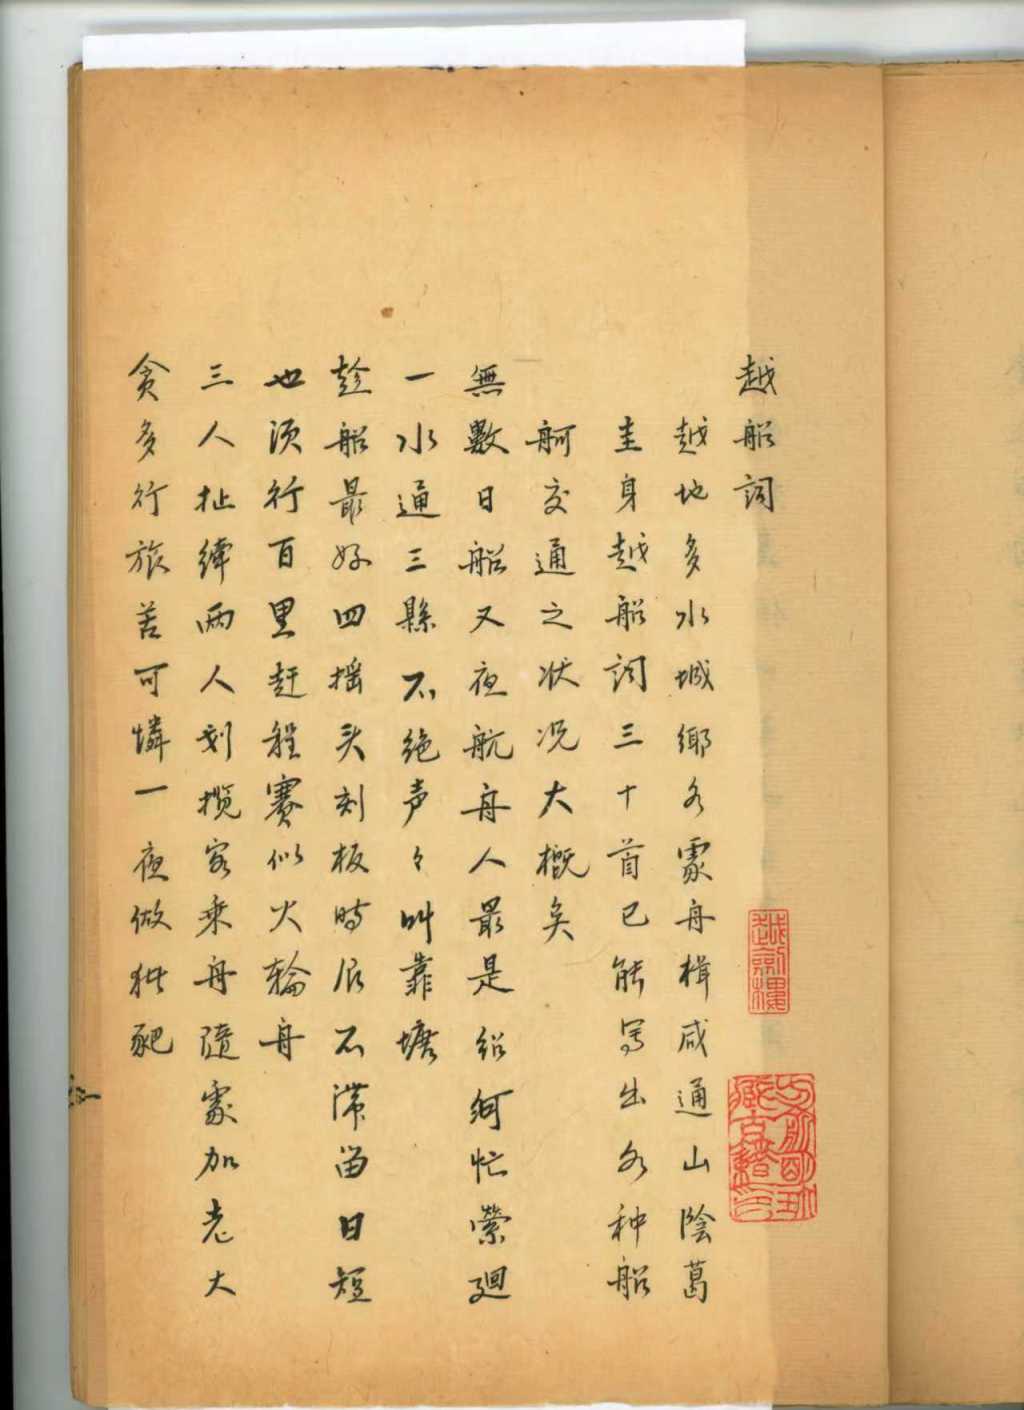 越船词
越地多水城鄉各處舟楫咸通山陰葛
圭身越船词三十首已能写出各种船
舸交通之状况大概矣
無數日船又夜航舟人最是紹舸忙縈廻
一水通三縣不绝声々叫靠塘
趁船最好四摇头刻板時辰不滞留日短
也须行百里赶程賽似火輪舟
三人扯縴两人划揽客乘舟隨處加老大
贪多行旅苦可憐一夜做猪豝
越劍樓